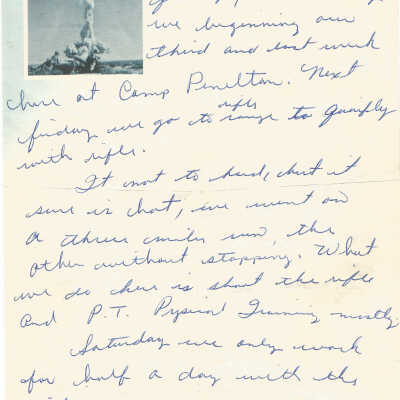 we beginning our
third and last week
here at Camp Penelton. Next
friday we go to rifle range to quaifly
with rifle.
It not to hard, but it
sure is hot, we went on
a three mile run, the
other without stopping. What
we do here is shoot the rifle
and P.T. Pysical Training mostly.
Saturday we only work
for half a day with the